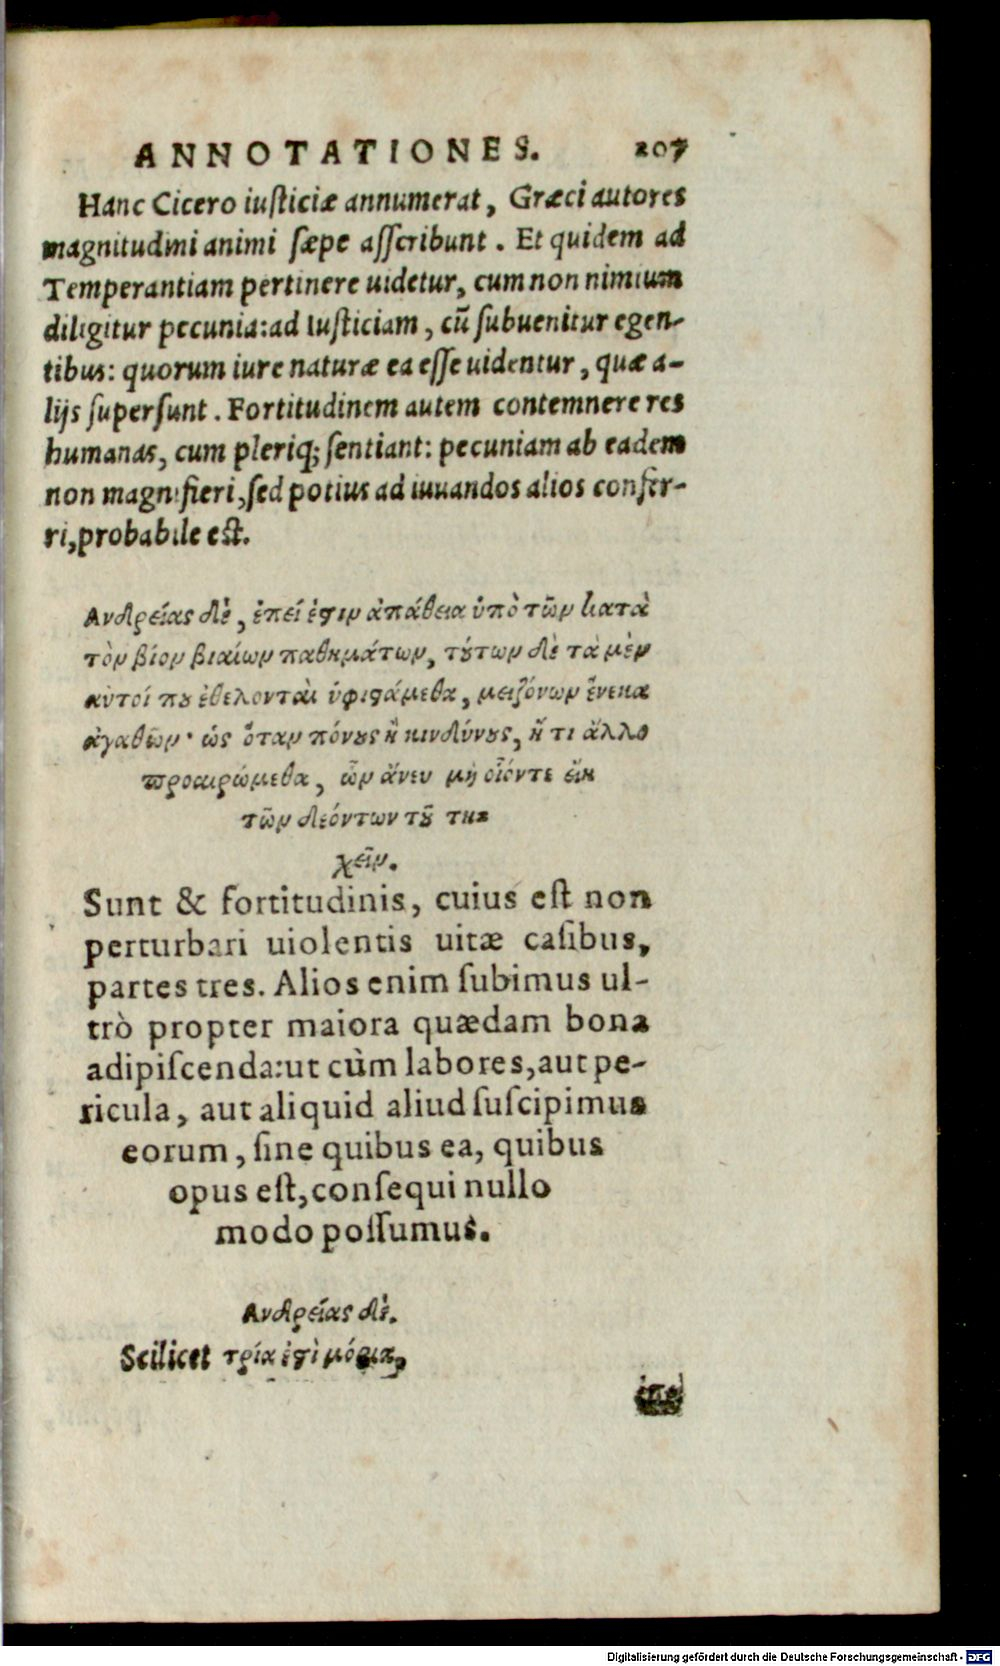 ANNOTATIONES. 207
Hanc Cicero iusticiæ annumerat, Græci autores
magnitudini animi sæpe asscribunt. Et quidem ad
Temperantiam pertinere uidetur, cum non nimium
diligitur pecunia: ad Iusticiam, cū subuenitur egen-
tibus: quorum iure naturæ ea esse uidentur, quæ a-
lijs supersunt. Fortitudinem autem contemnere res
humanas, cum pleriq; sentiant: pecuniam ab eadem
non magnifieri, sed potius ad iuuandos alios confer-
ri, probabile est.
Ανδρείας δὲ, ἐπεί ἐϛιν ἀπάθεια ὑπὸ τῶν κατὰ
τὸν βίον βιαίων παθημάτων, τούτων δὲ τὰ μὲν
αὐτοί που ἐθελονταὶ ὑφιϛάμεθα, μειζόνων ἕνεκα
ἀγαθῶν· ὡς ὅταν πόνους ἢ κινδύνους, ἤ τι ἄλλο
προαιρώμεθα, ὧν ἄνευ μὴ οἷόντε εἴη
τῶν δεόντων τοῦ τυ-
χεῖν.
Sunt & fortitudinis, cuius est non
perturbari uiolentis uitæ casibus,
partes tres. Alios enim subimus ul-
trò propter maiora quædam bona
adipiscenda: ut cùm labores, aut pe-
ricula, aut aliquid aliud suscipimus
eorum, sine quibus ea, quibus
opus est, consequi nullo
modo possumus.
Ανδρείας δὲ.
Scilicet τρία ἐϛὶ μόρια,
Digitalisierung gefördert durch die Deutsche Forschungsgemeinschaft - DFG